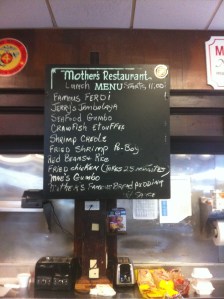 Mother's Restaurant
Lunch MENU Starts 11:00
Famous Ferdi
Jerry's Jambalaya
Seafood Gumbo
Crawfish Etouffee
Shrimp Creole
Fried Shrimp Po-Boy
Red Beans & Rice
Fried Chicken (Takes 25 minutes)
Mae's Gumbo
Mothers Famous Bread Pudding